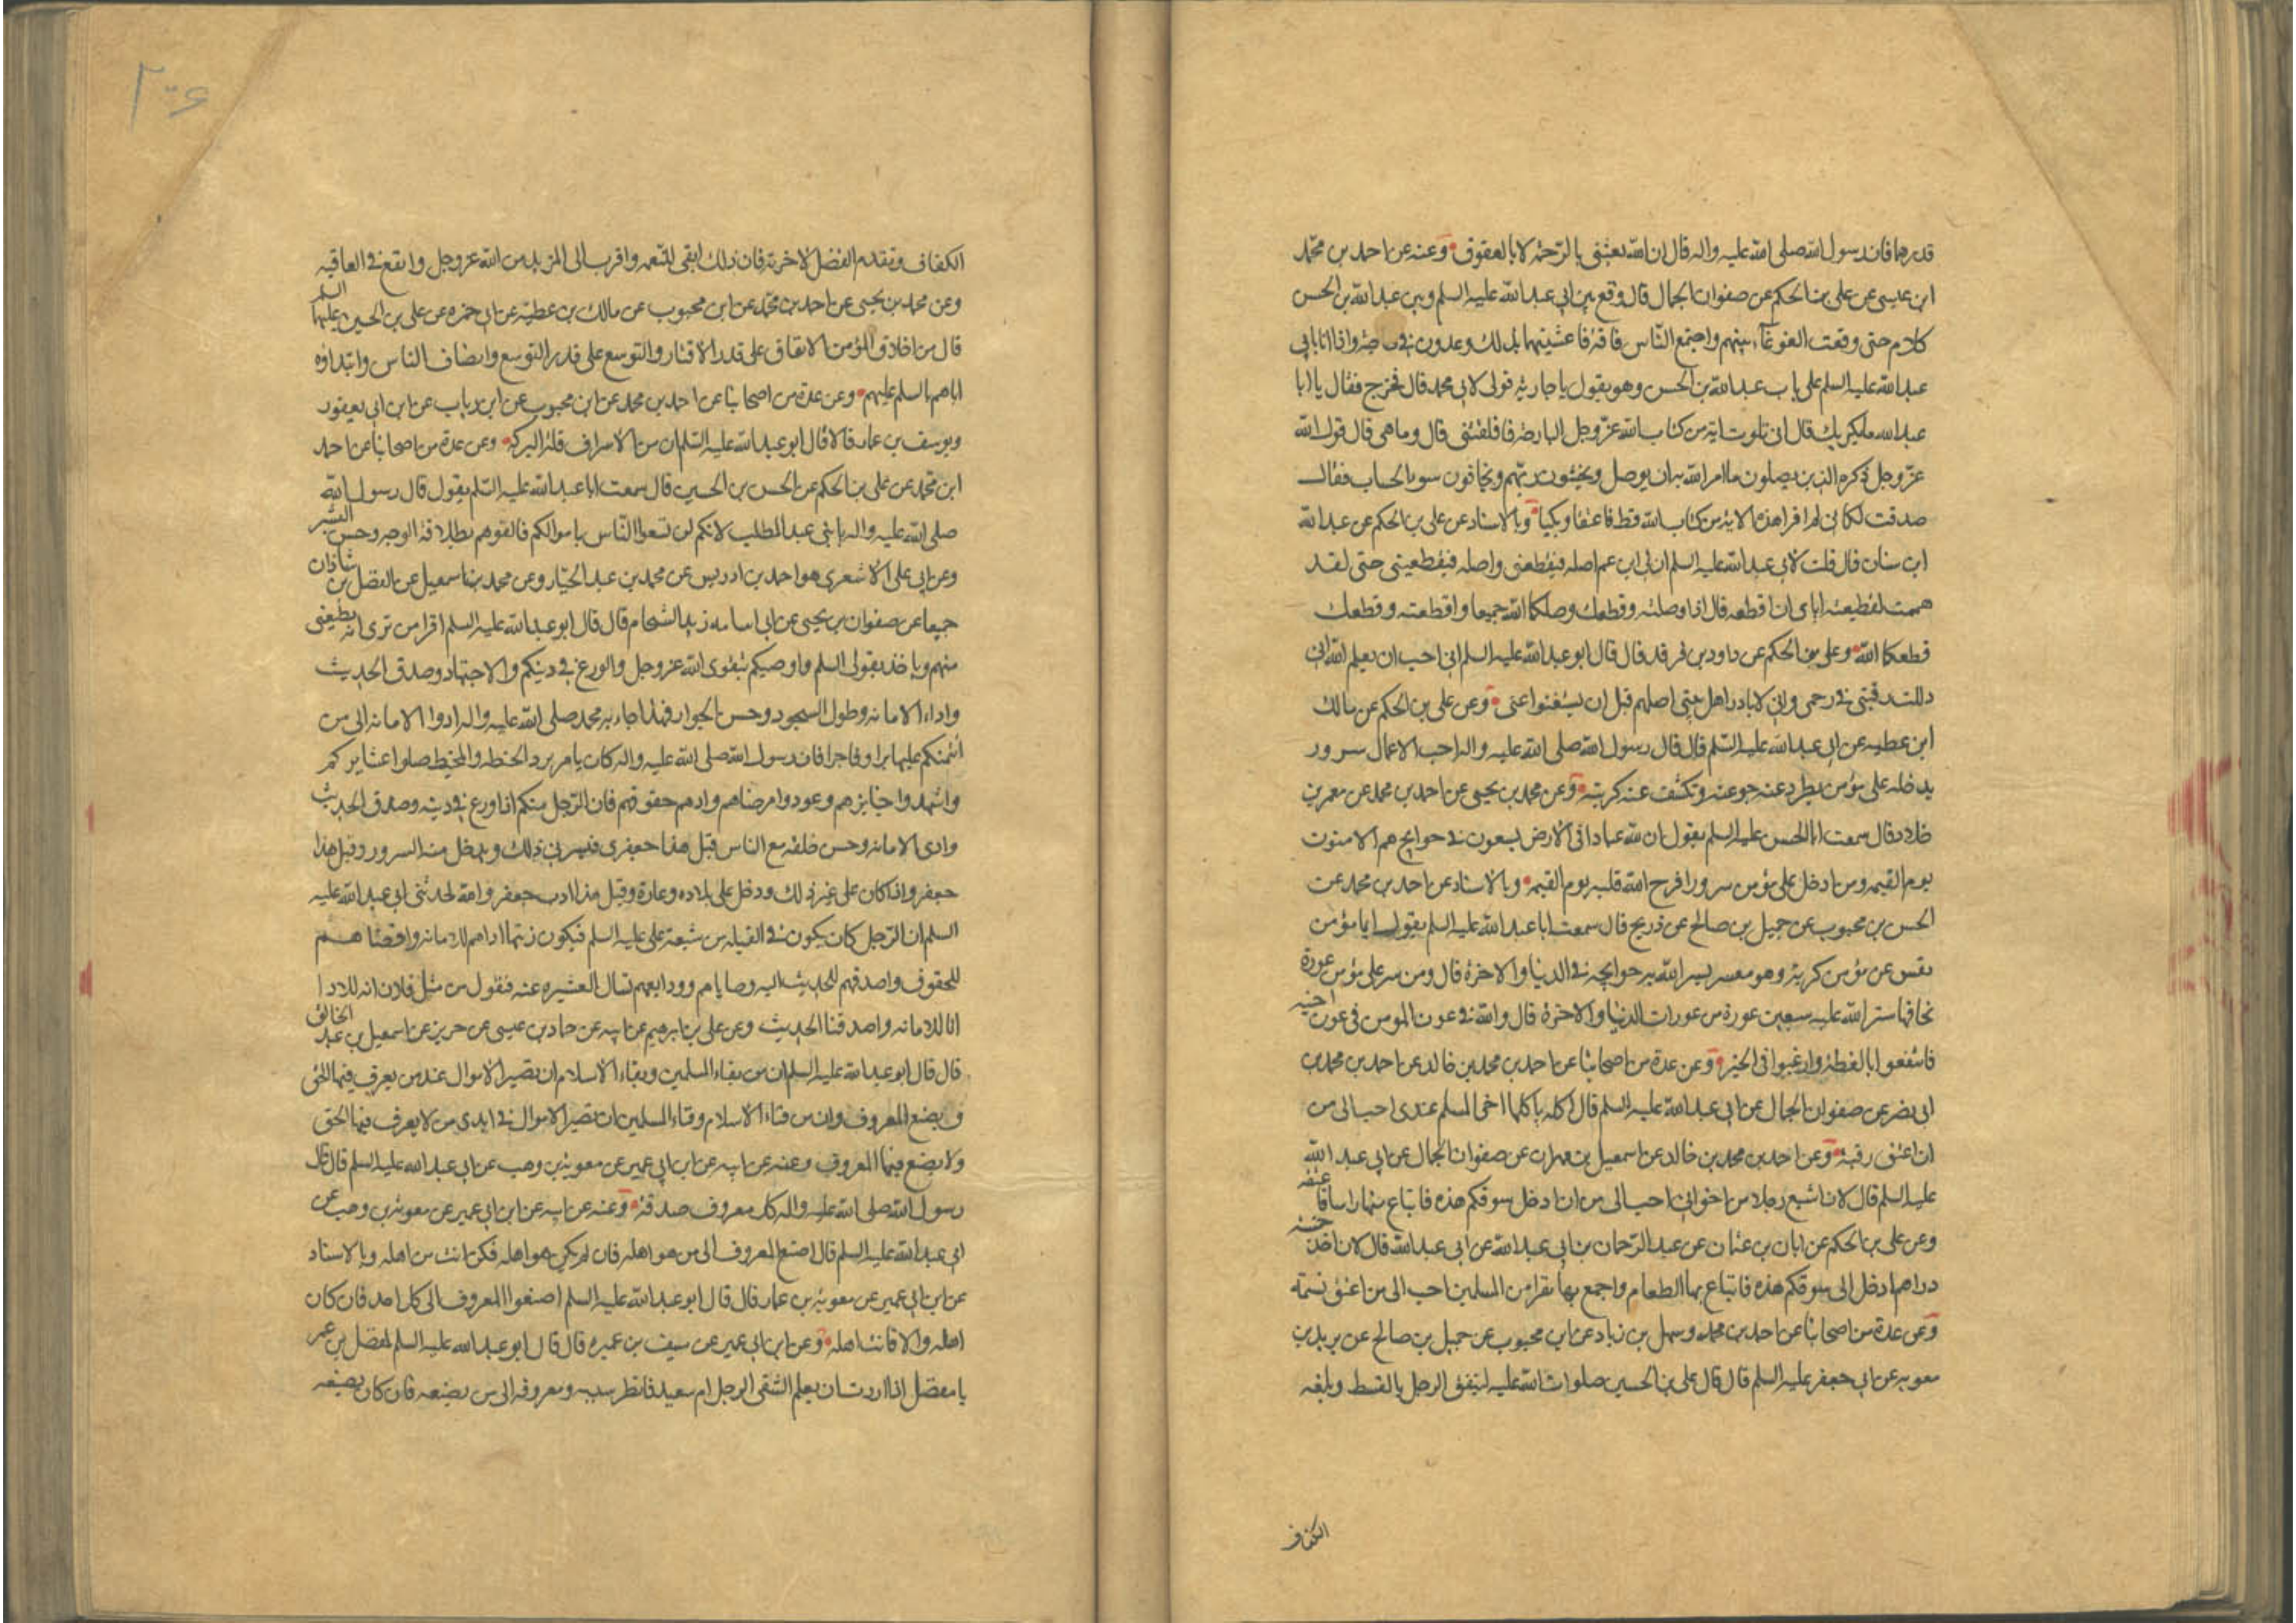 قدرها فان رسول الله صلى الله عليه واله قال ان الله بعثنى بالرحمة لا بالعقوق وعنه عن احمد بن محمد
ابن عيسى عن على بن الحكم عن صفوان الجمال قال وقع بين ابى عبد الله عليه السلم وبين عبد الله بن الحسن
كلام حتى وقعت الغوغاء بينهم واجتمع الناس فافترقا عشيتهما بذلك وغدوت فى حاجة واذا انا بابى
عبد الله عليه السلم على باب عبد الله بن الحسن وهو يقول يا جارية قولى لابى محمد قال فخرج فقال يا ابا
عبد الله ما بكر بك قال انى تلوت اية من كتاب الله عز وجل البارحة فاقلقتنى قال وما هى قال قول الله
عز وجل ذكره الذين يصلون ما امر الله به ان يوصل ويخشون ربهم ويخافون سوء الحساب فقال
صدقت لكانى لم اقرا هذه الاية من كتاب الله قط فاعتنقا وبكيا وبالاسناد عن على بن الحكم عن عبد الله
ابن سنان قال قلت لابى عبد الله عليه السلم ان لى ابن عم اصله فيقطعنى واصله فيقطعنى حتى لقد
هممت لقطيعته اياى ان اقطعه قال اذا وصلته وقطعك وصلكما الله جميعا وان قطعته وقطعك
قطعكما الله وعن على بن الحكم عن داود بن فرقد قال قال ابو عبد الله عليه السلم انى احب ان يعلم الله انى
ذللت رقبتى فى رحمى وانى لابادر اهل بيتى اصلهم قبل ان يستغنوا عنى وعن على بن الحكم عن مالك
ابن عطيه عن ابى عبد الله عليه السلم قال قال رسول الله صلى الله عليه واله احب الاعمال سرور
يدخله على مؤمن يطرد عنه جوعته وتكشف عنه كربته وعن محمد بن يحيى عن احمد بن محمد عن معمر بن
خلاد قال سمعت ابا الحسن عليه السلم يقول ان لله عبادا فى الارض يسعون فى حوايج هم الامنون
يوم القيمه ومن ادخل على مؤمن سرورا فرح الله قلبه يوم القيمه وبالاسناد عن احمد بن محمد عن
الحسن بن محبوب عن جميل بن صالح عن ذريح قال سمعت ابا عبد الله عليه السلم يقول ايما مؤمن
نفس عن مؤمن كربة وهو معسر يسر الله به حوايجه فى الدنيا والاخرة قال ومن ستر على مؤمن عورة
يخافها ستر الله عليه سبعين عورة من عورات الدنيا والاخرة قال والله فى عون المومن فى عون اخيه
فانتفعوا بالعظة وارغبوا فى الخير وعن عدة من اصحابنا عن احمد بن محمد بن خالد عن احمد بن محمد بن
ابى نصر عن صفوان الجمال عن ابى عبد الله عليه السلم قال اكلة ياكلها اخى المسلم عندى احب الى من
ان اعتق رقبة وعن احمد بن محمد بن خالد عن اسمعيل بن مهران عن صفوان الجمال عن ابى عبد الله
عليه السلم قال لان اشبع رجلا من اخوانى احب الى من ان ادخل سوقكم هذه فابتاع منها راسا فاعتقه
وعن على بن الحكم عن ابان بن عثمان عن عبد الرحمان بن ابى عبد الله عن ابى عبد الله قال لان اخذ خمسة
دراهم ادخل الى سوقكم هذه فابتاع بها الطعام واجمع بها نفرا من المسلمين احب الى من اعتق نسمة
وعن عدة من اصحابنا عن احمد بن محمد وسهل بن زياد عن ابن محبوب عن جميل بن صالح عن بريد بن
معويه عن ابى جعفر عليه السلم قال قال على بن الحسين صلوات الله عليه لينفق الرجل بالقسط وبلغه
الكفاف
الكفاف ويقدم الفضل لاخرته فان ذلك ابقى للنعمه واقرب الى المزيد من الله عز وجل وانفع فى العاقبه
وعن محمد بن يحيى عن احمد بن محمد عن ابن محبوب عن مالك بن عطية عن ابى حمزه عن على بن الحسين عليهما السلم
قال من اخلاق المؤمن الانفاق على قدر الاقتار والتوسع على قدر التوسع وانصاف الناس وابتداؤه
اياهم بالسلم عليهم وعن عدة من اصحابنا عن احمد بن محمد عن ابن محبوب عن ابن رياب عن ابن ابى يعفور
ويوسف بن عمار قالا قال ابو عبد الله عليه السلم ان من الاسراف قلة البركه وعن عدة من اصحابنا عن احمد
ابن محمد عن على بن الحكم عن الحسن بن الحسين قال سمعت ابا عبد الله عليه السلم يقول قال رسول الله
صلى الله عليه واله يا بنى عبد المطلب لانكم لن تسعوا الناس باموالكم فالقوهم بطلاقة الوجه وحسن البشر
وعن ابى على الاشعرى هو احمد بن ادريس عن محمد بن عبد الجبار وعن محمد بن اسمعيل عن الفضل بن شاذان
جميعا عن صفوان بن يحيى عن ابى اسامه زيد الشحام قال قال ابو عبد الله عليه السلم اقرا من ترى انه يطيعنى
منهم وياخذ بقولى السلم واوصيكم بتقوى الله عز وجل والورع فى دينكم والاجتهاد وصدق الحديث
واداء الامانه وطول السجود وحسن الجوار فبهذا جاء به محمد صلى الله عليه واله ادوا الامانه الى من
ائتمنكم عليها برا او فاجرا فان رسول الله صلى الله عليه واله كان يامر برد الخيط والمخيط صلوا عشايركم
واشهدوا جنايزهم وعودوا مرضاهم وادهم حقوقهم فان الرجل منكم اذا ورع فى دينه وصدق الحديث
وادى الامانه وحسن خلقه مع الناس قيل هذا جعفرى فيسرنى ذلك ويدخل منه السرور وقيل هذا
جعفر واذا كان على غير ذلك ودخل على بلاده وعاره وقيل هذا ادب جعفر والله لحدثنى ابى عبد الله عليه
السلم ان الرجل كان يكون فى القبيله من شيعة على عليه السلم فيكون زينها اداهم للامانه واقضاهم
للحقوق واصدقهم للحديث اليه وصاياهم وودايعهم تسال العشيره عنه فتقول من مثل فلان انه لادا
انا للامانه واصدقنا الحديث وعن على بن ابرهيم عن ابيه عن حماد بن عيسى عن حريز عن اسمعيل بن عبد الخالق
قال قال ابو عبد الله عليه السلم ان من بقاء المسلمين وبقاء الاسلام ان تصير الاموال عند من يعرف فيها الحق
ويضع المعروف وان من فناء الاسلام وفناء المسلمين ان تصير الاموال فى ايدى من لا يعرف فيها الحق
ولا يصنع فيها المعروف وعنه عن ابيه عن ابن ابى عمير عن معوية بن وهب عن ابى عبد الله عليه السلم قال قال
رسول الله صلى الله عليه واله كل معروف صدقة وعنه عن ابيه عن ابن ابى عمير عن معوية بن وهب عن
ابى عبد الله عليه السلم قال اصنع المعروف الى من هو اهله فان لم يكن هو اهله فكن انت من اهله وبالاسناد
عن ابن ابى عمير عن معوية بن عمار قال قال ابو عبد الله عليه السلم اصنعوا المعروف الى كل احد فان كان
اهله والا فانت اهله وعن ابن ابى عمير عن سيف بن عميره قال قال ابو عبد الله عليه السلم لمفضل بن عمر
يا مفضل اذا اردت ان يعلم الشقى الرجل ام سعيد فانظر سيبه ومعروفه الى من يصنعه فان كان يصنعه